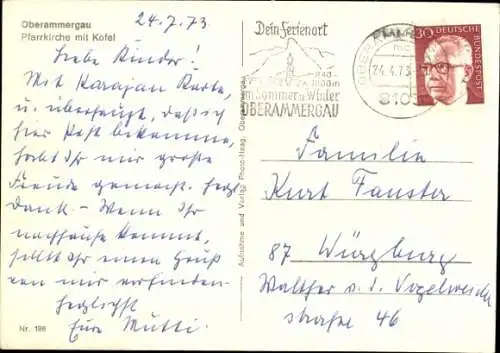 Oberammergau
Pfarrkirche mit Kofel
24.7.73
Liebe Kinder!
Mit Karajan Karte,
u. überhaupt, daß ich
hier Post bekomme,
habt Ihr mir große
Freude gemacht. Herzl.
Dank - Wenn Ihr
nachhause kommt,
sollt Ihr einen Gruß
von mir vorfinden.
herzlichst
Eure Mutti.
Nr. 196
Aufnahme und Verlag Photo-Haag, Oberammergau
Dein Ferienort
im Sommer u. Winter
OBERAMMERGAU
24.-7.73
8103
30 DEUTSCHE BUNDESPOST
Familie
Kurt Fauster
87 Würzburg
Walther v. d. Vogelweide
straße 46